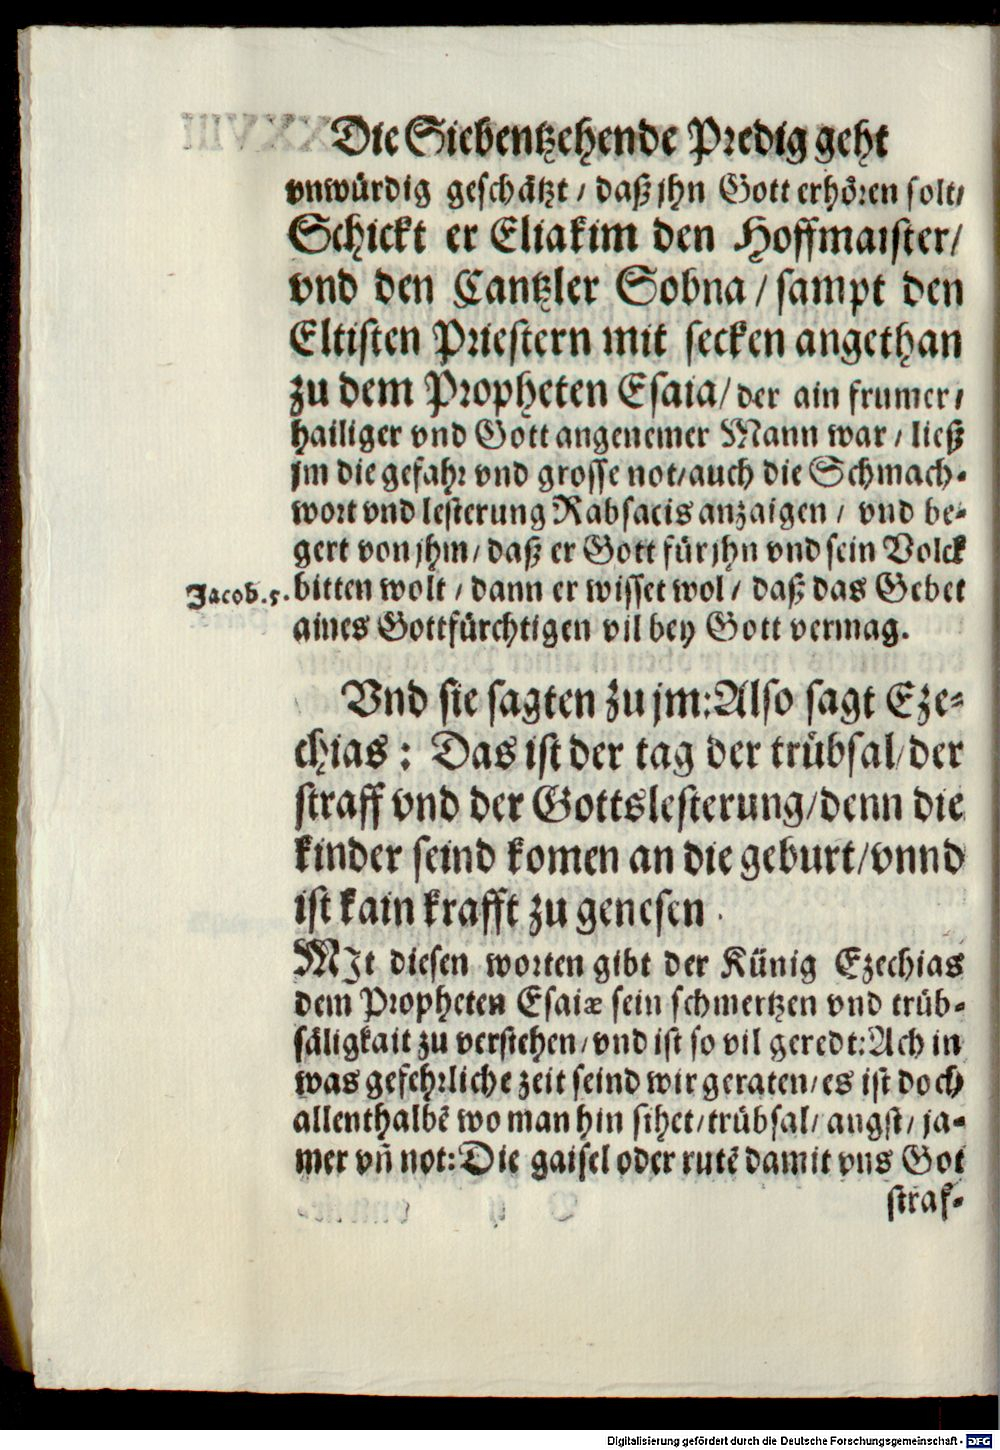 Die Siebentzehende Predig geht
vnwürdig geschätzt / daß jhn Gott erhören solt/
Schickt er Eliakim den Hoffmaister/
vnd den Cantzler Sobna / sampt den
Eltisten Priestern mit secken angethan
zu dem Propheten Esaia/ der ain frumer/
hailiger vnd Gott angenemer Mann war / ließ
jm die gefahr vnd grosse not/auch die Schmach-
wort vnd lesterung Rabsacis anzaigen / vnd be-
gert von jhm/ daß er Gott für jhn vnd sein Volck
Jacob.5. bitten wolt / dann er wisset wol / daß das Gebet
aines Gottfürchtigen vil bey Gott vermag.
Vnd sie sagten zu jm: Also sagt Eze-
chias : Das ist der tag der trübsal/der
straff vnd der Gottslesterung/denn die
kinder seind komen an die geburt/vnnd
ist kain krafft zu genesen.
MJt diesen worten gibt der Künig Ezechias
dem Propheten Esaiæ sein schmertzen vnd trüb-
säligkait zu verstehen/vnd ist so vil geredt: Ach in
was gefehrliche zeit seind wir geraten/es ist doch
allenthalbẽ wo man hin sihet/trübsal/ angst/ ja-
mer vñ not: Die gaisel oder rutẽ damit vns Got
straf-
Digitalisierung gefördert durch die Deutsche Forschungsgemeinschaft - DFG